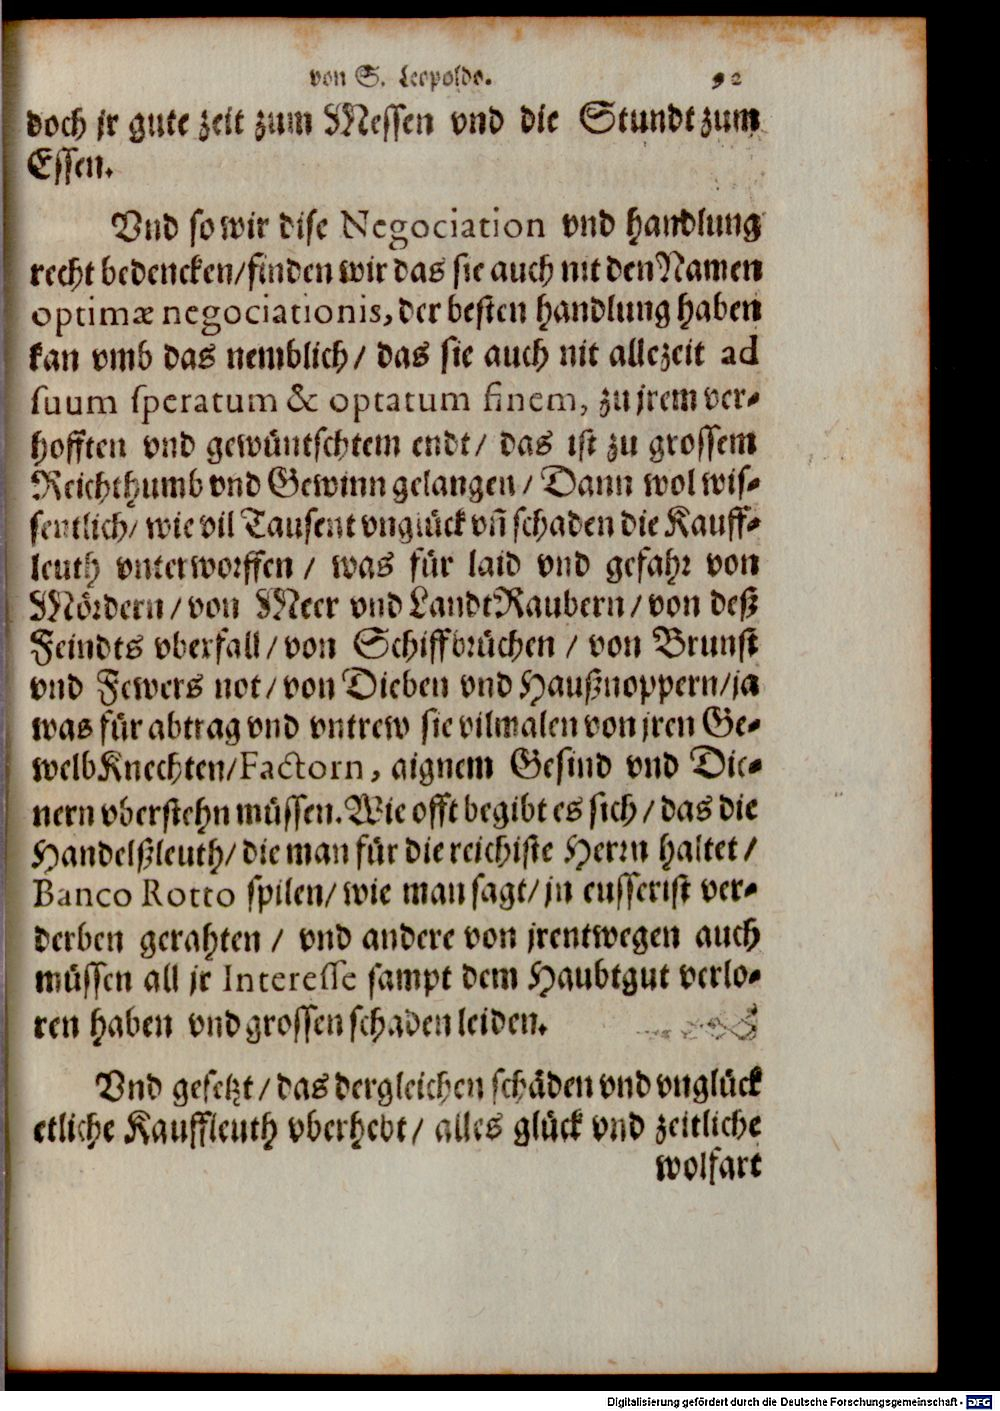 von S. Leopoldo. 92
doch jr gute zeit zum Messen vnd die Stundt zum
Essen.
Vnd so wir dise Negociation vnd handlung
recht bedencken/finden wir das sie auch nit den Namen
optimæ negociationis, der besten handlung haben
kan vmb das nemblich/ das sie auch nit allezeit ad
suum speratum & optatum finem, zu jrem ver-
hofften vnd gewüntschtem endt/ das ist zu grossem
Reichthumb vnd Gewinn gelangen/ Dann wol wis-
sentlich/ wie vil Tausent vnglück vñ schaden die Kauff-
leuth vnterworffen/ was für laid vnd gefahr von
Mördern/von Meer vnd LandtRaubern/von deß
Feindts vberfall/von Schiffbrüchen/ von Brunst
vnd Fewers not/von Dieben vnd Haußnoppern/ja
was für abtrag vnd vntrew sie vilmalen von jren Ge-
welbKnechten/Factorn, aignem Gesind vnd Die-
nern vberstehn müssen. Wie offt begibt es sich/das die
Handelßleuth/die man für die reichiste Herrn haltet/
Banco Rotto spilen/wie man sagt/jn eusserist ver-
derben gerahten/ vnd andere von jrentwegen auch
müssen all jr Interesse sampt dem Haubtgut verlo-
ren haben vnd grossen schaden leiden.
Vnd gesetzt/das dergleichen schäden vnd vnglück
etliche Kauffleuth vberhebt/ alles glück vnd zeitliche
wolfart
Digitalisierung gefördert durch die Deutsche Forschungsgemeinschaft - DFG